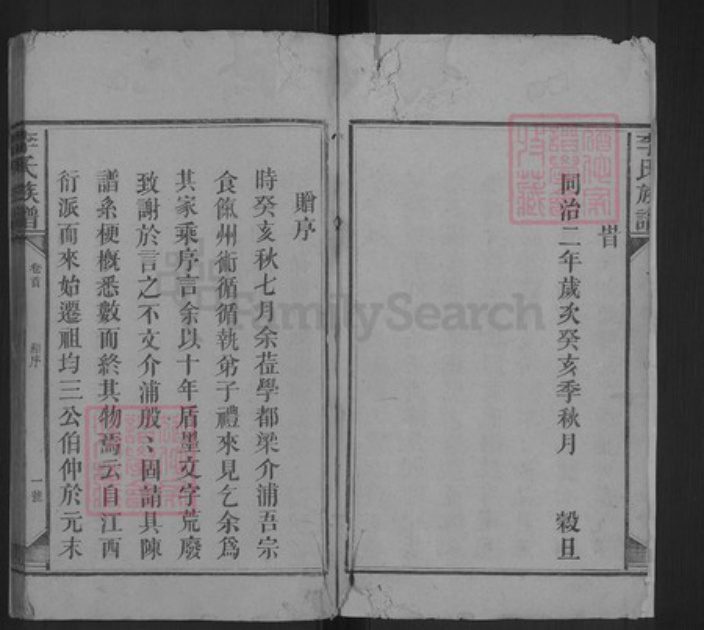 李氏族譜
旹
同治二年歲次癸亥季秋月 穀旦
贈序
時癸亥秋七月余莅學都梁介浦吾宗
食餼州術循循執弟子禮來見乞余爲
其家乘序言余以十年盾墨文字荒廢
致謝於言之不文介浦殷〻固請具陳
譜系梗概悉數而終其物焉云自江西
衍派而來始遷祖均三公伯仲於元末
李氏族譜
卷首
贈序
一號
FamilySearch